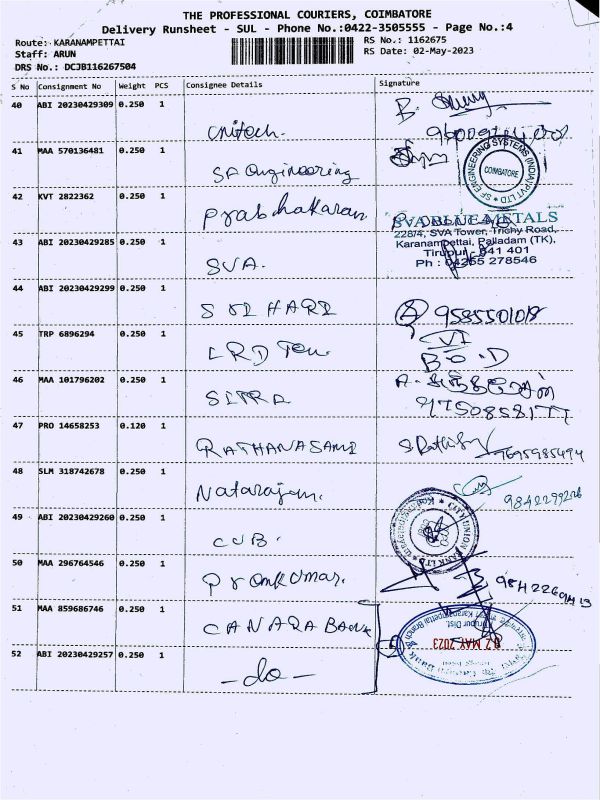 THE PROFESSIONAL COURIERS, COIMBATORE
Delivery Runsheet - SUL - Phone No.:0422-3505555 - Page No.:4
Route: KARANAMPETTAI
Staff: ARUN
DRS No.: DCJB116267504
RS No.: 1162675
RS Date: 02-May-2023
S No Consignment No Weight PCS Consignee Details Signature
40 ABI 20230429309 0.250 1
Unitech.
41 MAA 570136481 0.250 1
SF Engineering
SF ENGINEERING SYSTEMS (INDIA) PVT LTD
COIMBATORE
42 KVT 2822362 0.250 1
Prabhakaran
SVA BLUE METALS
228/4, SVA Tower, Trichy Road,
Karanampettai, Palladam (TK),
Tirupur - 641 401
Ph : 04255 278546
43 ABI 20230429285 0.250 1
SVA.
44 ABI 20230429299 0.250 1
SRI HARI
9585501018
45 TRP 6896294 0.250 1
B.O.D
46 MAA 101796202 0.250 1
SITRA
9750858177
47 PRO 14658253 0.120 1
RATHANASAMI
9695985494
48 SLM 318742678 0.250 1
Natarajan.
9842299226
49 ABI 20230429260 0.250 1
CUB.
CITY UNION BANK LTD
50 MAA 296764546 0.250 1
Premkumar.
51 MAA 859686746 0.250 1
CANARA BANK
02 MAY 2023
52 ABI 20230429257 0.250 1
-do-